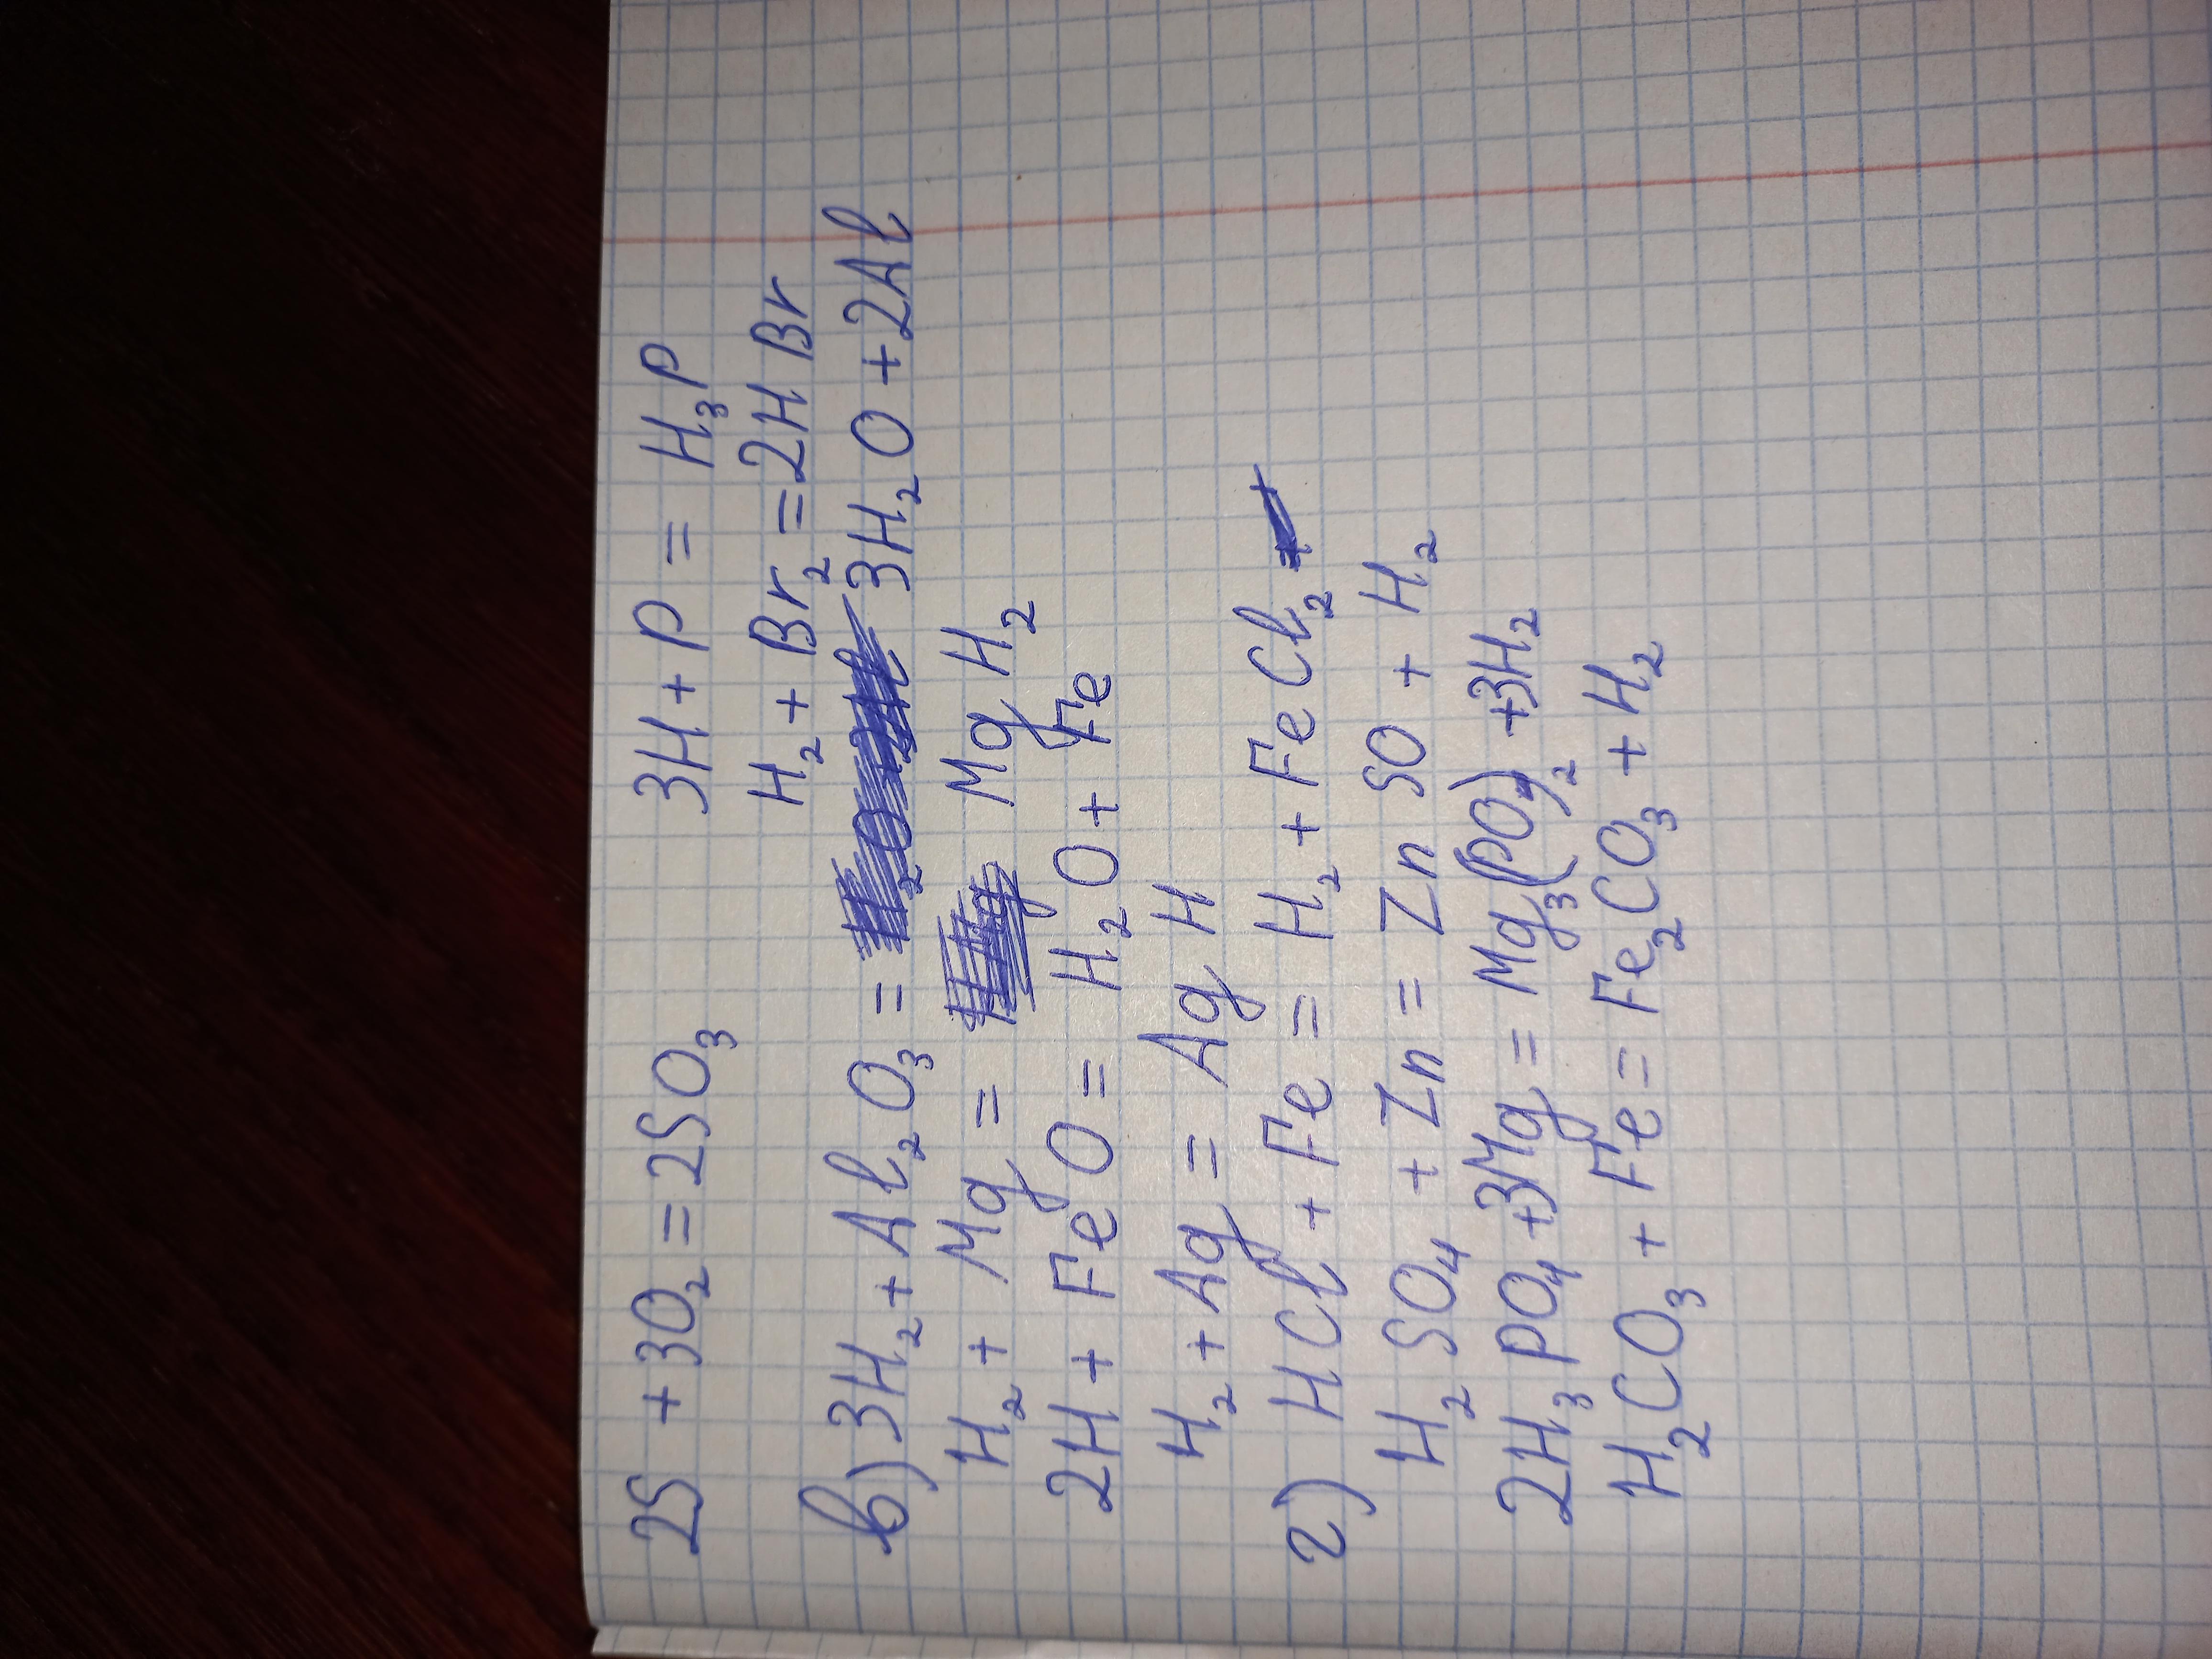 2S + 3O₂ = 2SO₃ 3H + P = H₃P
H₂ + Br₂ = 2HBr
в) 3H₂ + Al₂O₃ = 3H₂O + 2Al
H₂ + Mg = MgH₂
2H + FeO = H₂O + Fe
H₂ + Ag = AgH
г) HCl + Fe = H₂ + FeCl₂
H₂SO₄ + Zn = ZnSO + H₂
2H₃PO₄ + 3Mg = Mg₃(PO₄)₂ + 3H₂
H₂CO₃ + Fe = Fe₂CO₃ + H₂